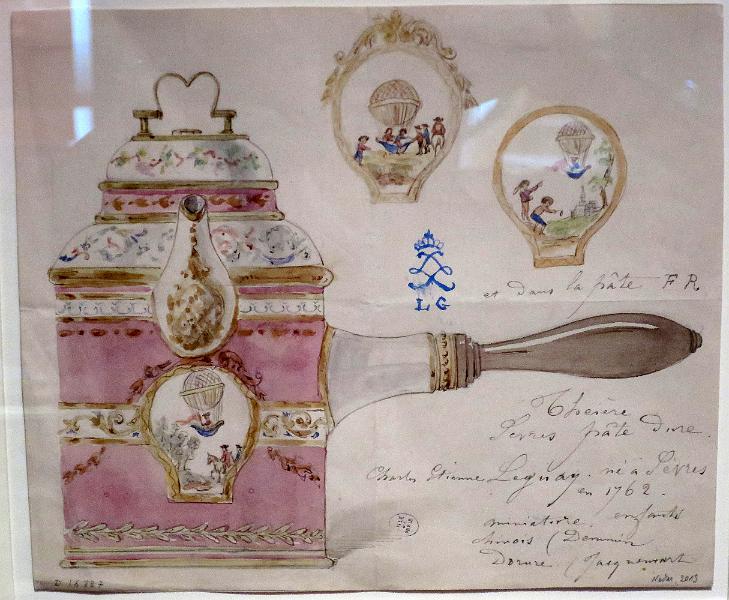 LG
et dans la pâte F R
Théière
Sèvres pâte Dure.
Charles Etienne Leguay. né à Sèvres
en 1762.
miniature enfants
chinois (
Dorure (
D 14887